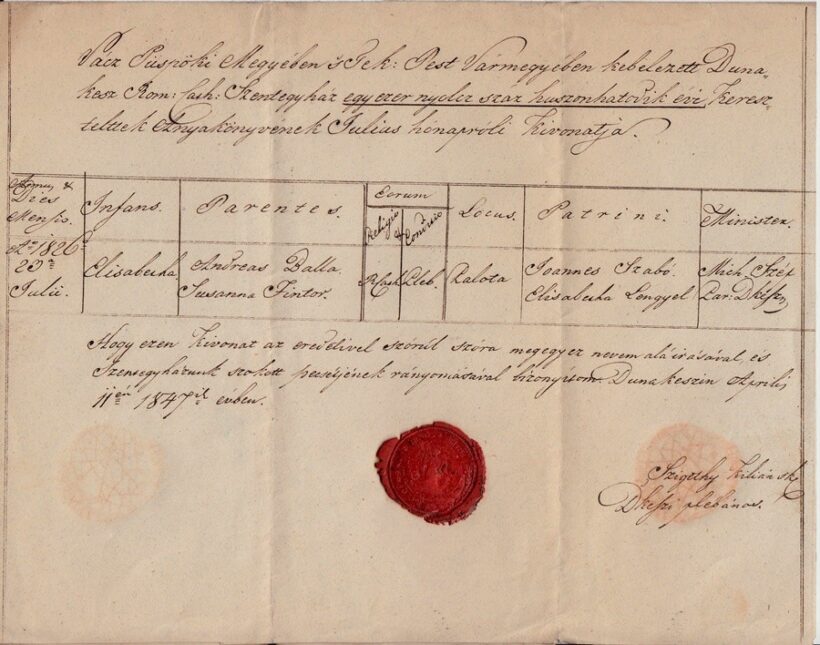 Vácz Püspöki Megyében 's Tek: Pest Vármegyében kebelezett Duna-
kesz Rom: Cath: Szentegyház egyezer nyolcz száz huszonhatodik évi Keresz-
telttek Annyakönyvének Julius hónapróli Kivonatja.
Annus, &
Dies
Mensis.
Infans.
Parentes.
Eorum
Religio &
Conditio
Locus.
Patrini.
Minister.
Ao 1826o
23a
Julii.
Elisabetha
Andreas Dalla.
Susanna Fintor.
RCath
Pleb.
Palota
Joannes Szabó.
Elisabetha Lengyel
Mich. Szép
Par: Dkeszi
Hogy ezen Kivonat az eredetivel szórúl szóra megegyez nevem aláirásával, és
Szentegyházunk szokott pecsétjének rányomásával bizonyitom. Dunakeszin Aprilis
11én 1847ik évben.
Szigethy Kilián mk
Dkeszi plébános.